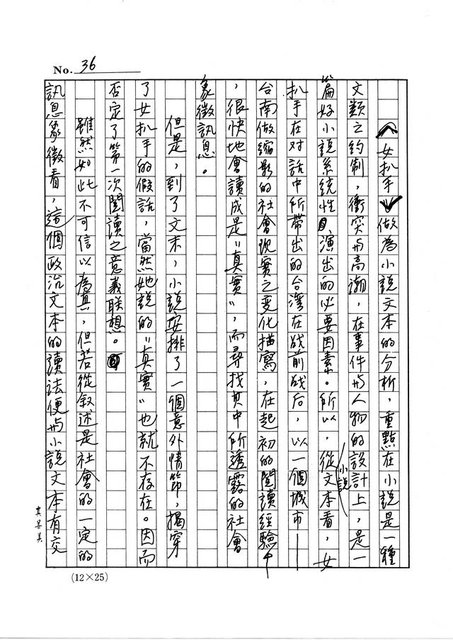 No. 36
〈女扒手〉做為小說文本的分析，重點在小說是一種
文類之約制，衝突與高潮，在事件與人物的設計上，是一
篇好小說系統性演出的必要因素。所以，從小說文本看，女
扒手在對話中所帶出的台灣在战前战后，以一個城市——
台南做縮影的社會現實之變化描寫，在起初的閱讀經驗中
，很快地會讀成是"真實"，而尋找其中所透露的社會
象徵訊息。
但是，到了文末，小說安排了一個意外情節，揭穿
了女扒手的假話，當然她說的"真實"也就不存在。因而
否定了第一次閱讀之意義联想。
雖然如此不可信以為真，但若從敘述是社會的一定的
訊息象徵看，這個政治文本的讀法便與小說文本有交
(12×25)